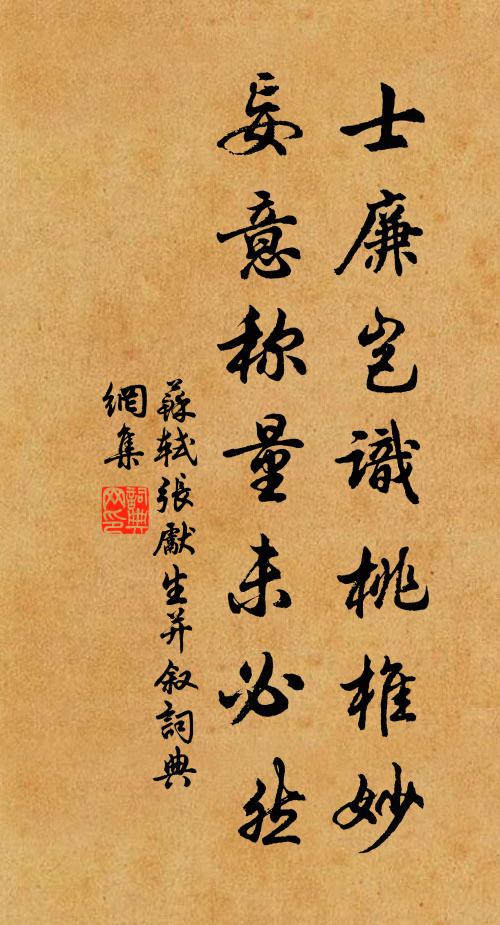 士廉豈識桃椎妙
妄意称量未必然
蘇軾張獻生并叙詞典
網集
詞典網印